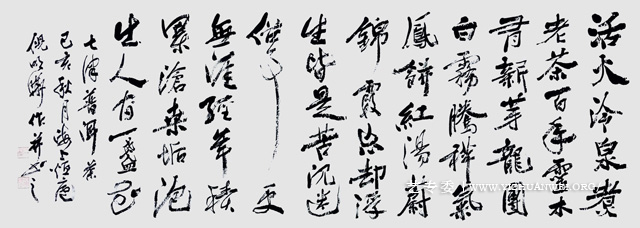 活火冷泉煮
老茶百年靈木
育新芽龍團
白霧騰祥氣
鳳餅紅湯蔚
錦霞忘却浮
生皆是苦沉迷
事更
無涯經年積
累滄桑垢泡
出人間一盞花
七律普洱茶
己亥秋月海上
倪明作并書之